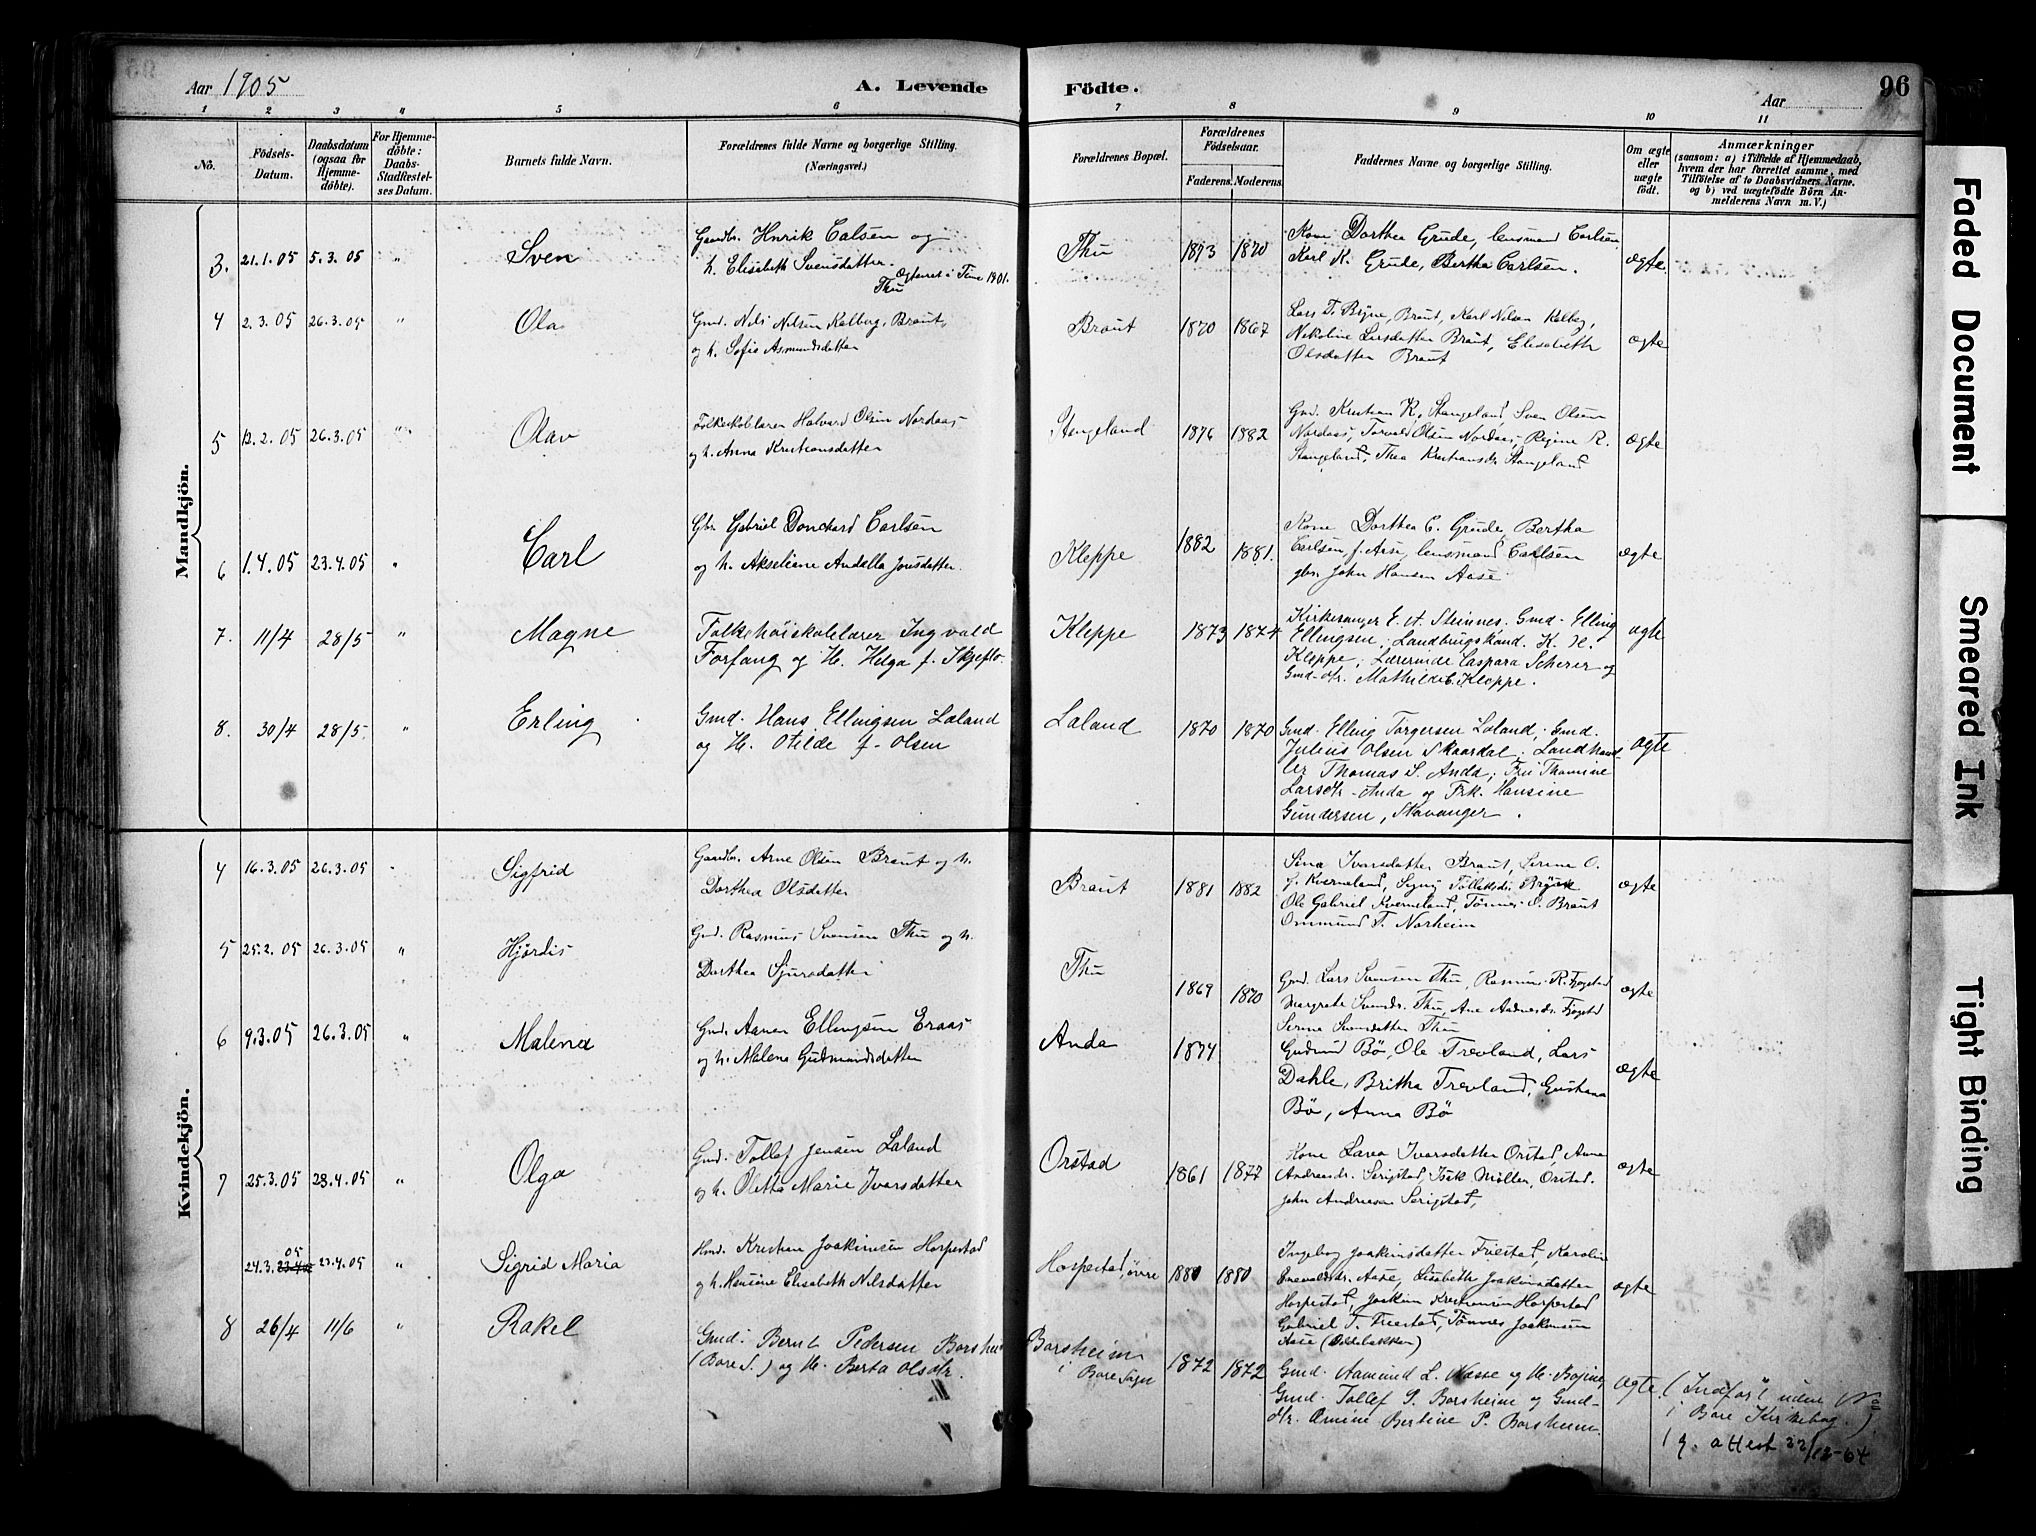 Aar 1905
A. Levende
Födte.
Aar
96
1 2 3 " 5 6 7 8 9 10 11
No.
Födsels-
Datum.
Daabsdatum
(ogsaa for
Hjemme-
döbte).
For Hjemme-
döbte:
Daabs-
Stadfæstel-
ses Datum.
Barnets fulde Navn.
Forældrenes fulde Navne og borgerlige Stilling.
(Næringsvei.)
Forældrenes Bopæl.
Forældrenes
Födselsaar.
Faderens. Moderens.
Faddernes Navne og borgerlige Stilling.
Om ægte
eller
uægte
födt.
Anmærkninger
(saasom: a) i Tilfælde af Hjemmedaab,
hvem der har forrettet samme, med
Tilföielse af to Daabsvidners Navne.
og b) ved uægtefödte Börn An-
melderens Navn m. V.)
Mandkjön.
3. 21.1.05 5.3.05 " Sven
Gaardbr. Henrik Calsen og
h. Elisabeth Svensdatter.
Ægteviet i Time 1901.
Thu
Thu 1873 1870
Kone Dorthea Grude, lensmand Carlsen
Karl K. Grude, Bertha Carlsen.
ægte
4 2.3.05 26.3.05 " Ola
Gmd. Nils Nilsen Kalberg, Braut,
og h. Sofie Asmundsdatter
Braut 1870 1867
Lars T. Bryne, Braut, Karl Nilsen Kalberg,
Nikoline Larsdatter Braut, Elisabeth
Olsdatter Braut
ægte
5 12.2.05 26.3.05 " Olav
Folkeskolelærer Halvard Olsen Nordaas
og h. Anna Kristiansdatter
Stangeland 1876 1882
Gmd. Kristian K. Stangeland, Sven Olsen
Nordaas, Torvald Olsen Nordaas, Regine R.
Stangeland, Thea Kristiansdr. Stangeland
ægte
6 1.4.05 23.4.05 " Carl
Gbr. Gabriel Donchard Carlsen
og h. Akseliane Andella Jonsdatter.
Kleppe 1882 1881.
Kone Dorthea C. Grude, Bertha
Carlsen, f. Aase, lensmand Carlsen
gbr. John Hansen Aase
ægte
7. 11/4 28/5 " Magne
Folkehöiskolelærer Ingvald
Forfang og H. Helga f. Skjeflo.
Kleppe 1873 1874
Kirkesanger E. A. Steinnes. Gmd. Elling
Ellingsen; Landbrugskand. K. H.
Kleppe; Lærerinde Caspara Scherer og
Gmd-dtr. Mathilde C. Kleppe.
ægte
8. 30/4 28/5 " Erling
Gmd. Hans Ellingsen Laland
og H. Otilde f. Olsen
Laland 1870 1870
Gmd. Elling Torgersen Laland, Gmd.
Julius Olsen Skaardal. Landhand-
ler Thomas S. Anda; Fru Thomine
Larsdtr. Anda og Frk. Hansine
Gundersen, Stavanger.
ægte
Kvindekjön.
4 16.3.05 26.3.05 Sigfrid
Gaardbr. Arne Olsen Braut og h.
Dorthea Olsdatter
Braut 1881 1882
Sina Ivarsdatter Braut, Serine O.
f. Kverneland, Signy Tollaksdr. Bryne
Ole Gabriel Kverneland, Tønnes O. Braut
Ommund T. Norheim
ægte
5 25.2.05 26.3.05 " Hjördis
Gmd. Rasmus Svensen Thu og h.
Dorthea Sjursdatter
Thu 1869 1870
Gmd. Lars Svensen Thu, Rasmus R. Fjogstad
Margrete Svendr. Thu, Ane Aadnesdr. Fjogstad
Serine Svensdatter Thu
ægte
6 9.3.05 26.3.05 " Malena
Gmd. Aanen Ellingsen Eraas
og h. Malena Gudmundsdatter
Anda 1874
Gudmund Bø, Ole Trevland, Lars
Dahle, Britha Trevland, Gustava
Bø, Anna Bø
ægte
7 25.3.05 23.4.05 " Olga
Gmd. Tollef Jensen Laland
og h. Oletta Marie Ivarsdatter
Orstad 1861 1877
Kone Lava Ivarsdatter Orstad, Anna
Andreasdr. Serigstad, Isak Møller, Orstad.
John Andreasen Serigstad,
ægte
24.3.05 23.4.05 " Sigrid Maria
Hmd. Kristian Joakimsen Horpestad
og h. Hansine Elisabeth Nilsdatter
Horpestad, øvre 1880 1880
Ingeborg Joakimsdatter Friestad, Karoline
Enevaldsdr. Aase, Elisabeth Joakimsdatter
Horpestad, Joakim Kristiansen Horpestad
Gabriel T. Friestad, Tønnes Joakimsen
Aase
ægte
8 26/4 11/6 " Rakel
Gmd. Bernt Pedersen Borsheim
(Bore S.) og H. Berta Olsdtr.
Borsheim
i Bore Sogn
1872 1872
Gmd. Aamund L. Nasse og H. Bojine,
Gmd. Tollef P. Borsheim og Gmd-
dtr. Omine Bertine P. Borsheim.
ægte
(Indført uden No.
i Bore Kirkebog.)
1 g. attest 22/12-64
Faded Document
Smeared Ink
Tight Binding